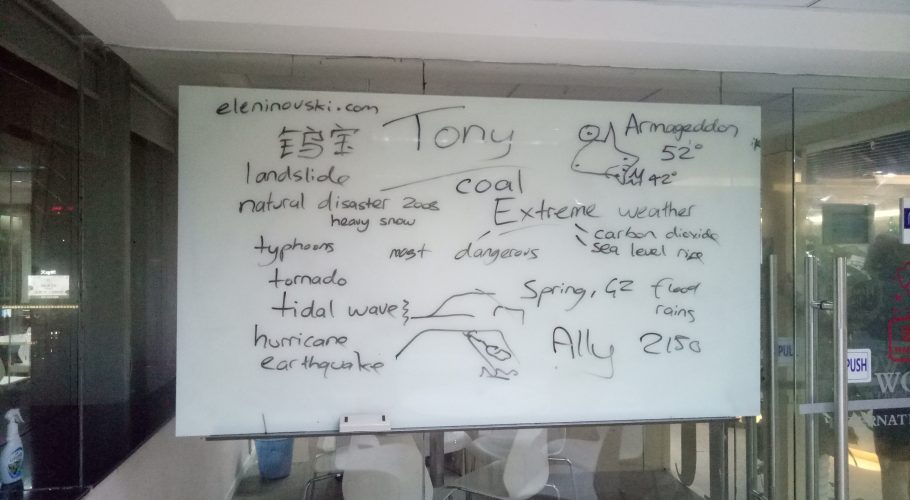 eleninovski.com
Tony
Armageddon
52°
42°
landslide
coal
natural disaster 2008
heavy snow
Extreme weather
carbon dioxide
sea level rise
typhoons
most dangerous
tornado
Spring, GZ flood
rains
tidal wave
hurricane
Ally 2150
earthquake
PUL
PUSH
WO